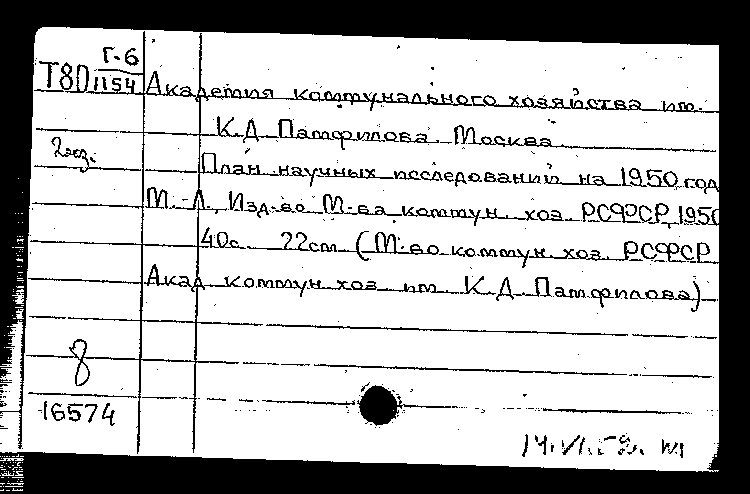 Г-6
Т80 1154
Академия коммунального хозяйства им.
К.Д. Памфилова. Москва.
2 экз.
План научных исследований на 1950 год
М.-Л., Изд-во М-ва коммун. хоз. РСФСР, 1950
40с. 22см. (М-во коммун. хоз. РСФСР
Акад. коммун. хоз. им. К.Д. Памфилова)
8
16574